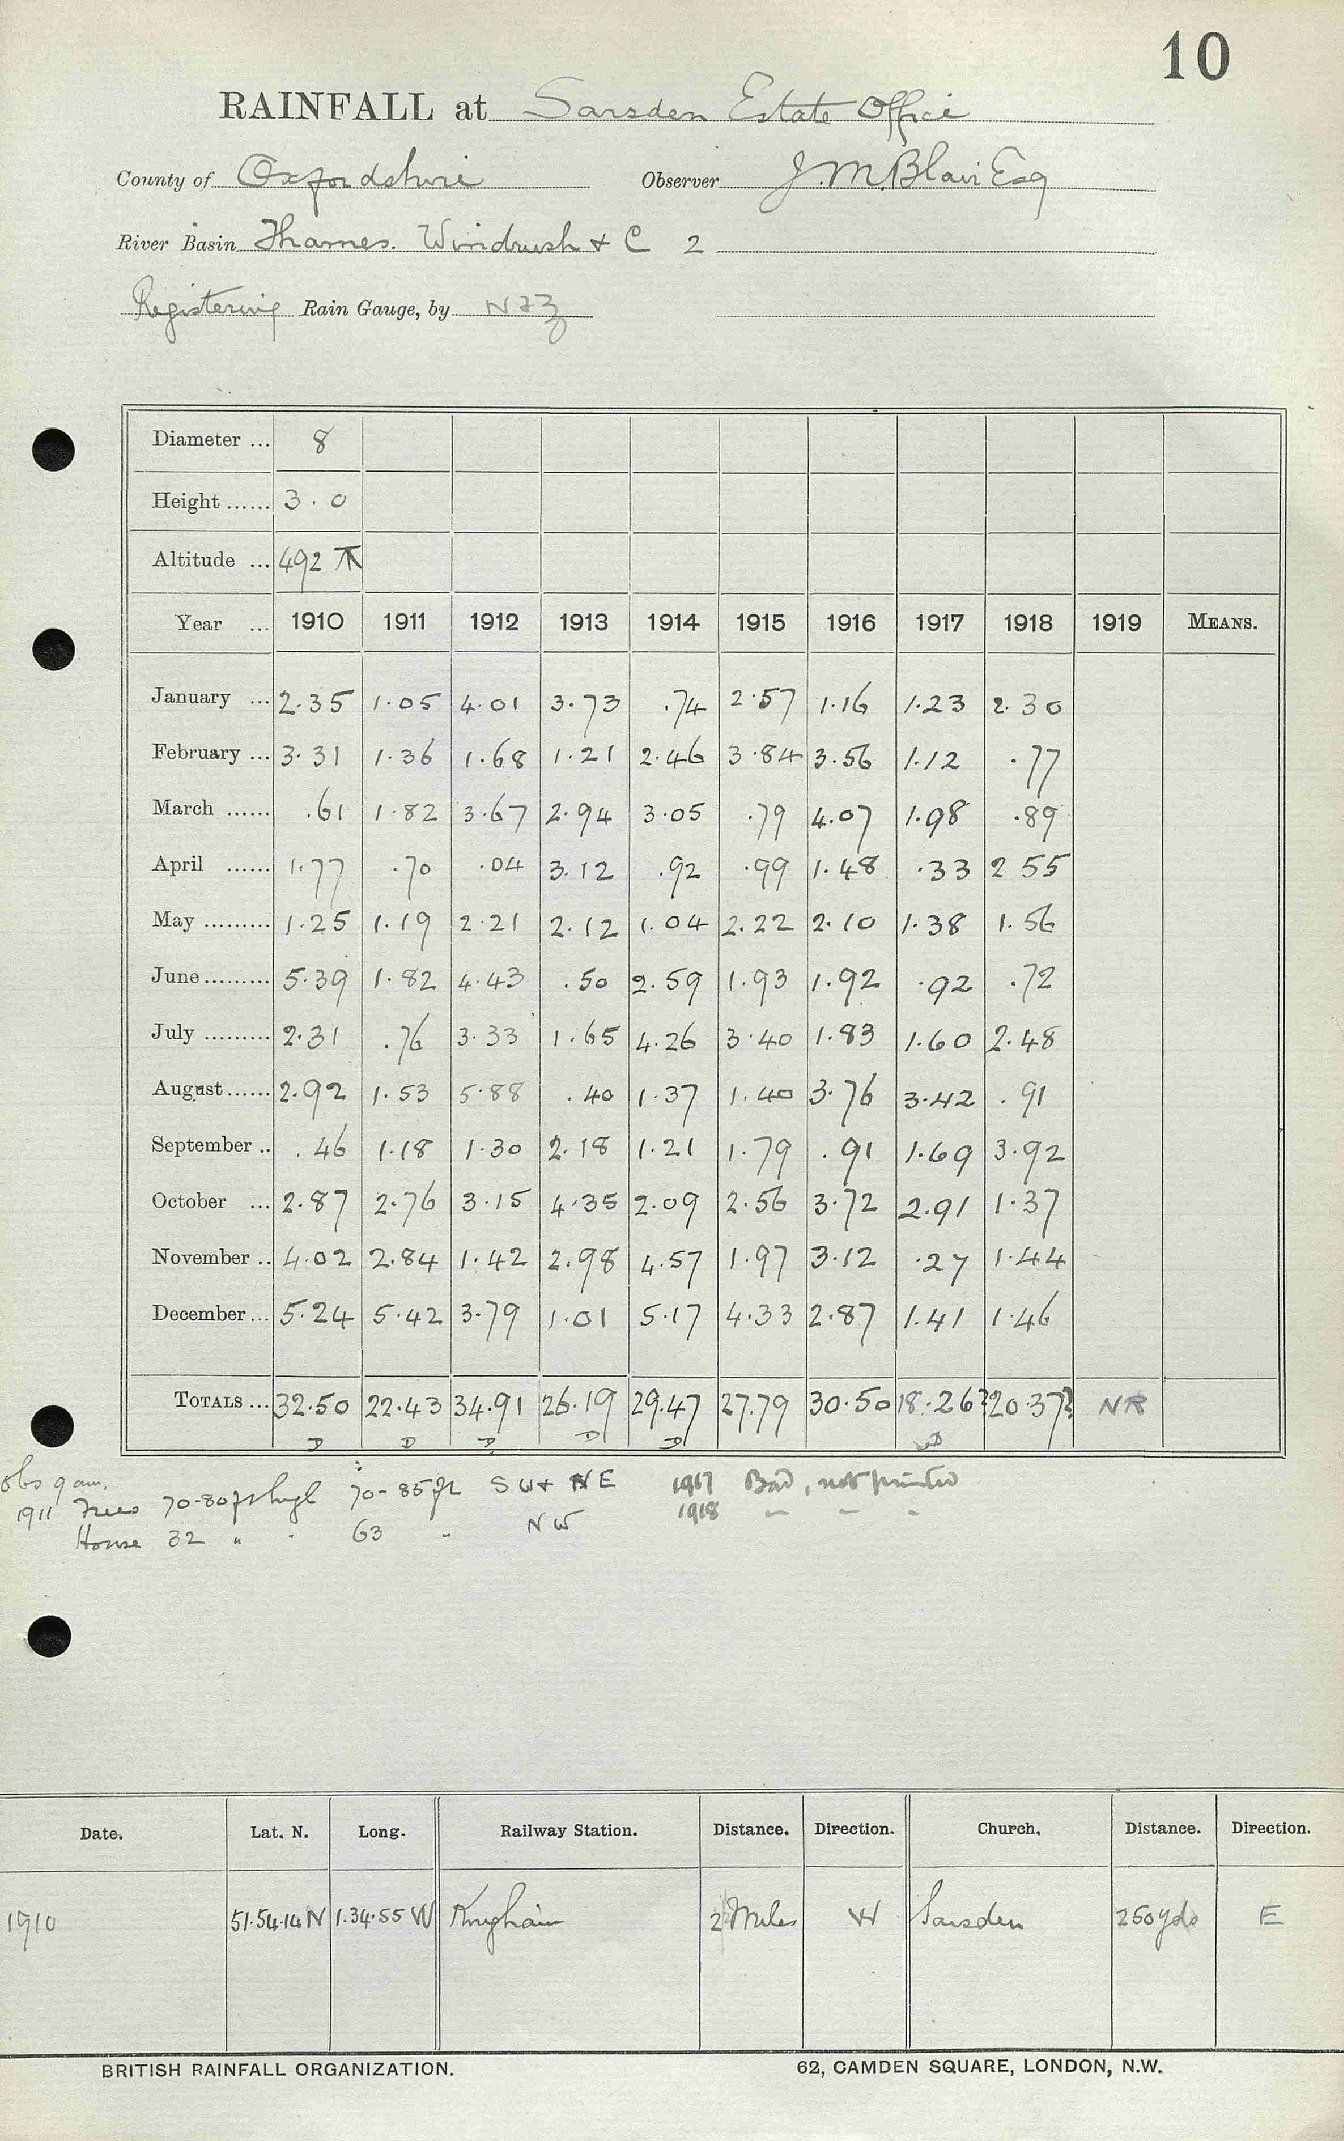 10
RAINFALL at Sarsden Estate Office
County of Oxfordshire Observer J. M. Blair Esq
River Basin Thames. Windrush & C 2
Registering Rain Gauge, by N & Z
Diameter ... 8
Height ...... 3.0
Altitude ... 492
Year ... 1910 1911 1912 1913 1914 1915 1916 1917 1918 1919 MEANS.
January ... 2.35 1.05 4.01 3.73 .74 2.57 1.16 1.23 2.30
February ... 3.31 1.36 1.68 1.21 2.46 3.84 3.56 1.12 .77
March ...... .61 1.82 3.67 2.94 3.05 .79 4.07 1.98 .89
April ...... 1.77 .70 .04 3.12 .92 .99 1.48 .33 2 55
May ......... 1.25 1.19 2.21 2.12 1.04 2.22 2.10 1.38 1.56
June ......... 5.39 1.82 4.43 .50 2.59 1.93 1.92 .92 .72
July ......... 2.31 .76 3.33 1.65 4.26 3.40 1.83 1.60 2.48
August ...... 2.92 1.53 5.88 .40 1.37 1.40 3.76 3.42 .91
September .. .46 1.18 1.30 2.18 1.21 1.79 .91 1.69 3.92
October ... 2.87 2.76 3.15 4.35 2.09 2.56 3.72 2.91 1.37
November .. 4.02 2.84 1.42 2.98 4.57 1.97 3.12 .27 1.44
December ... 5.24 5.42 3.79 1.01 5.17 4.33 2.87 1.41 1.46
TOTALS ... 32.50 22.43 34.91 26.19 29.47 27.79 30.50 18.26? 20.37? NR
D D D D D D
obs 9 am.
1911 Trees 70-80 ft high 70-85 ft SW & NE 1917 Bad, not printed
House 32 " " 63 " NW 1918 " " "
Date. Lat. N. Long. Railway Station. Distance. Direction. Church. Distance. Direction.
1910 51.54.14 N 1.34.55 W Kingham 2 Miles W Sarsden 250 yds E
BRITISH RAINFALL ORGANIZATION. 62, CAMDEN SQUARE, LONDON, N.W.